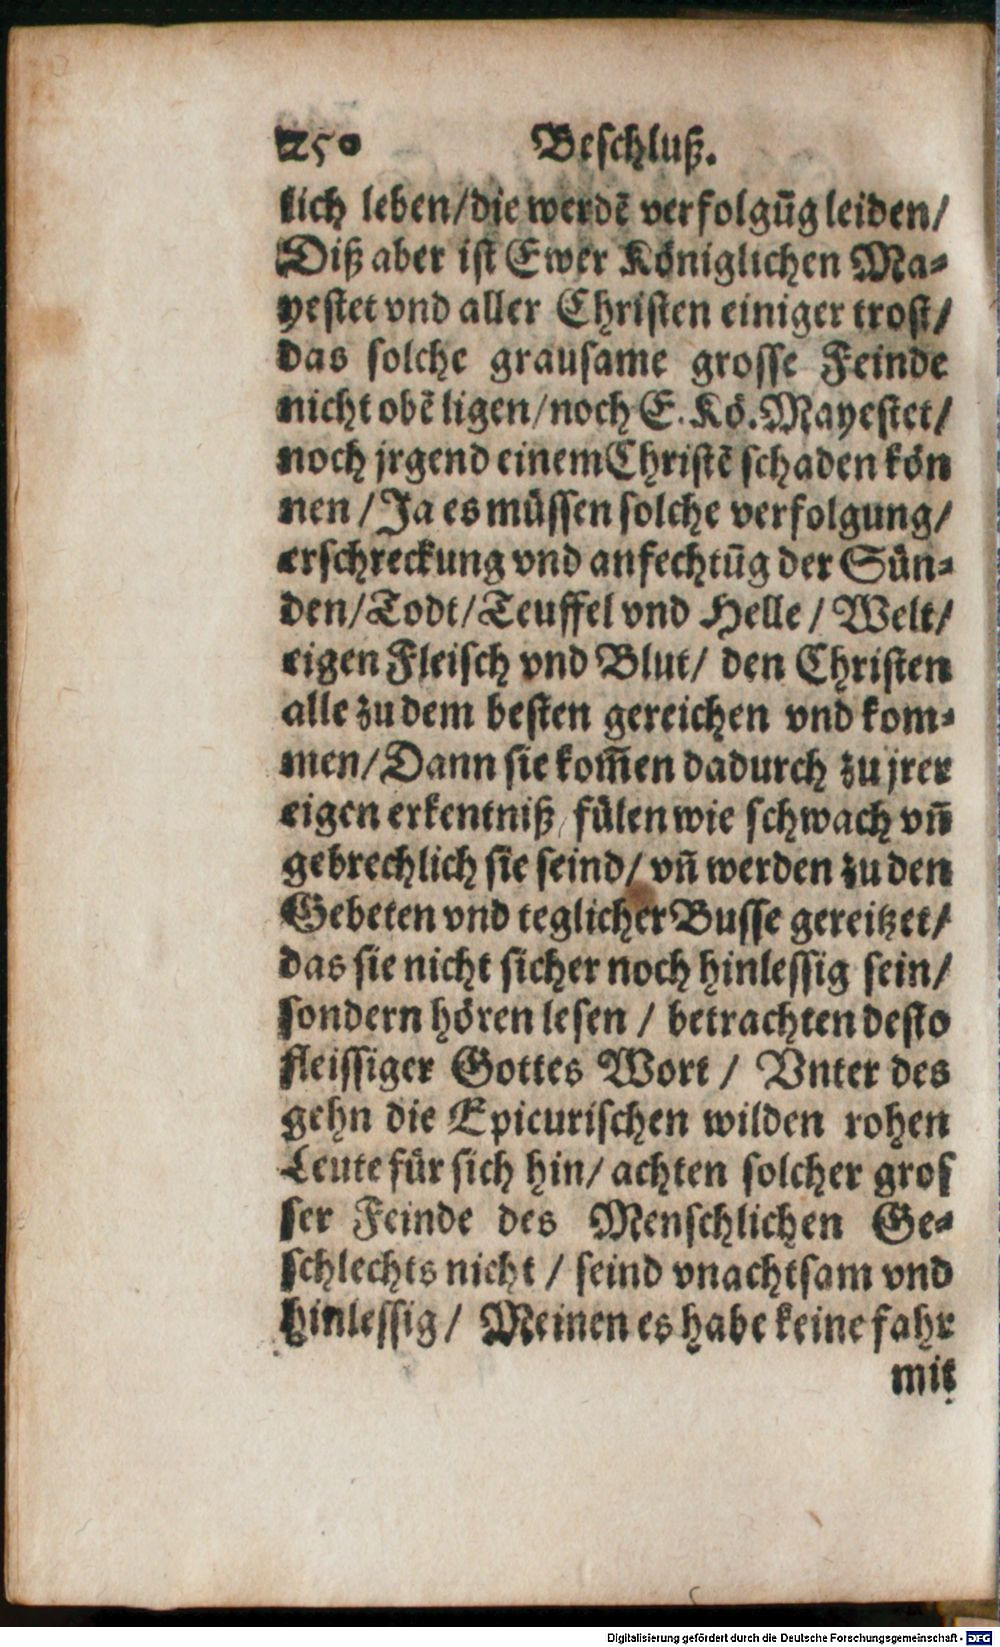 250 Beschluß.
lich leben/die werdẽ verfolgũg leiden/
Diß aber ist Ewer Königlichen Ma-
yestet vnd aller Christen einiger trost/
das solche grausame grosse Feinde
nicht obẽ ligen/noch E. Kö. Mayestet/
noch jrgend einem Christẽ schaden kön
nen / Ja es müssen solche verfolgung/
erschreckung vnd anfechtũg der Sün-
den/Todt/Teuffel vnd Helle / Welt/
eigen Fleisch vnd Blut/ den Christen
alle zu dem besten gereichen vnd kom-
men/Dann sie kom̃en dadurch zu jrer
eigen erkentniß/ fülen wie schwach vñ
gebrechlich sie seind/ vñ werden zu den
Gebeten vnd teglicher Busse gereitzet/
das sie nicht sicher noch hinlessig sein/
sondern hören lesen / betrachten desto
fleissiger Gottes Wort / Vnter des
gehn die Epicurischen wilden rohen
Leute für sich hin/ achten solcher gros
ser Feinde des Menschlichen Ge-
schlechts nicht / seind vnachtsam vnd
hinlessig/ Meinen es habe keine fahr
mit
Digitalisierung gefördert durch die Deutsche Forschungsgemeinschaft - DFG